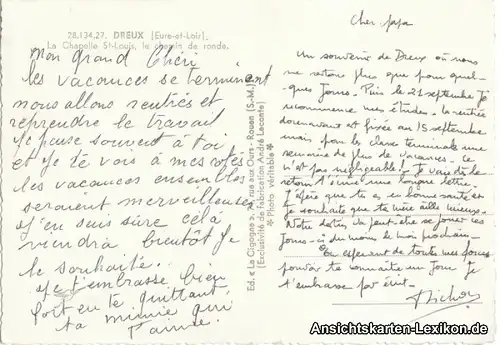 28.134.27. DREUX (Eure-et-Loir).
La Chapelle St-Louis, le chemin de ronde.
Mon grand Chéri
les vacances se terminent
nous allons rentrés et
reprendre le travail
Je pense souvent à toi
et je te vois à mes cotés
les vacances ensembles
seraient merveilleuses
j'en suis sûre celà
viendra bientôt je
le souhaite.
Je t'embrasse bien
fort en te quittant
ta mimie qui
t'aime.
Ed. « La Cigogne », 74, rue aux Ours - Rouen (S.-M.)
(Exclusivité de fabrication André Leconte)
★ Photo véritable ★
Cher papa
Un souvenir de Dreux où nous
ne restons plus que pour quel-
ques jours. Puis le 21 septembre je
recommence mes études. La rentrée
dorénavant est fixée au 15 septembre
mais pour les classes terminale une
semaine de plus de vacances. Ce
n'est pas négligeable! Je vais dès le
retour t'écrire une longue lettre.
J'espère que tu es en bonne santé et
je souhaite que tu ailles mieux.
Notre destin va peut-être se jouer ces
jours-ci du moins le mois prochain.
En espérant de toutes mes forces
pouvoir te connaître un jour je
t'embrasse par écrit.
Ansichtskarten-Lexikon.de